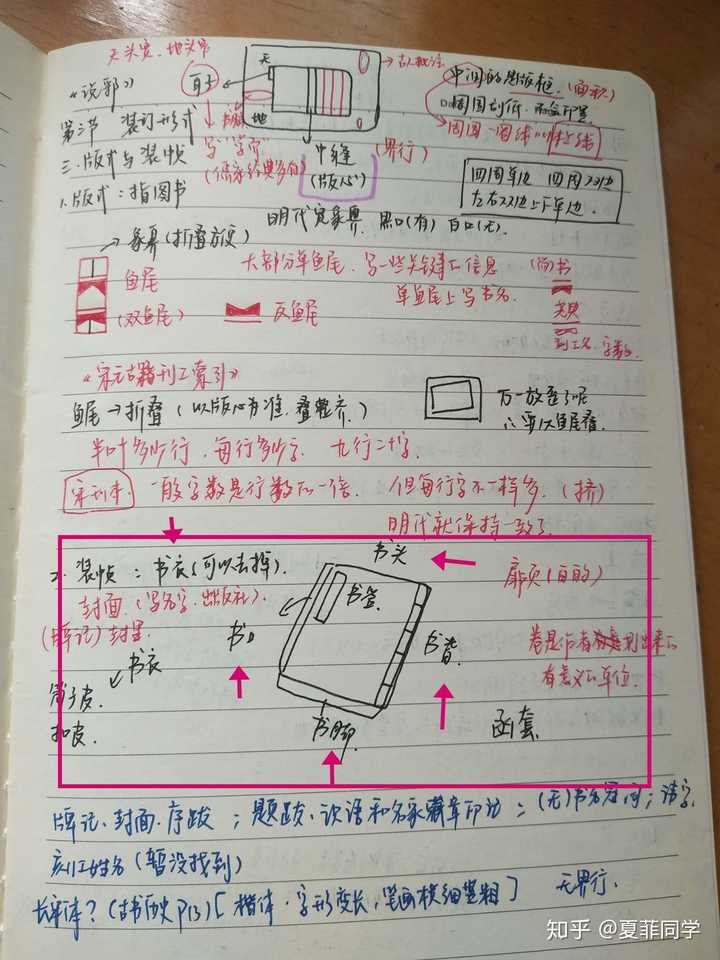 天头宽、地头窄
天
→古人批注
中间的是版框(面积)
《说郛》
耳子
第三节 装订形式
地
中缝
(界行)
三.版式与装帧
(版心)
四周单边 四周双边
左右双边上下单边.
1.版式:指图书
明代宽象鼻 黑口(有) 白口(无).
→象鼻(折叠放便)
大部分单鱼尾、写一些关键的信息
鱼尾
单鱼尾上写书名.
(双鱼尾)
反鱼尾
刻工名.字数.
《宋元古籍刊工索引》
鱼尾→折叠(以版心为准.叠整齐.)
万一放歪了呢
半叶多少行.每行多少字. 九行二十字.
宋刊本. 一般字数是行数的一倍. 但每行字不一样多.(挤)
明代就保持一致了.
2.装帧:书衣(可以去掉).
书头
扉页(白的)
封面.(写名字.出版社).
书签
(牌记)封里
书口
书背.
书衣
有意义的单位.
筒子皮.
函套.
扣皮.
书脚
牌记、封面、序跋;题跋、识语和名家藏章印记;(无)书名冠词;讳字.
刻工姓名(暂没找到)
(古书历史P13)[楷体.字形变长,笔画横细竖粗] 无界行.
知乎 @夏菲同学